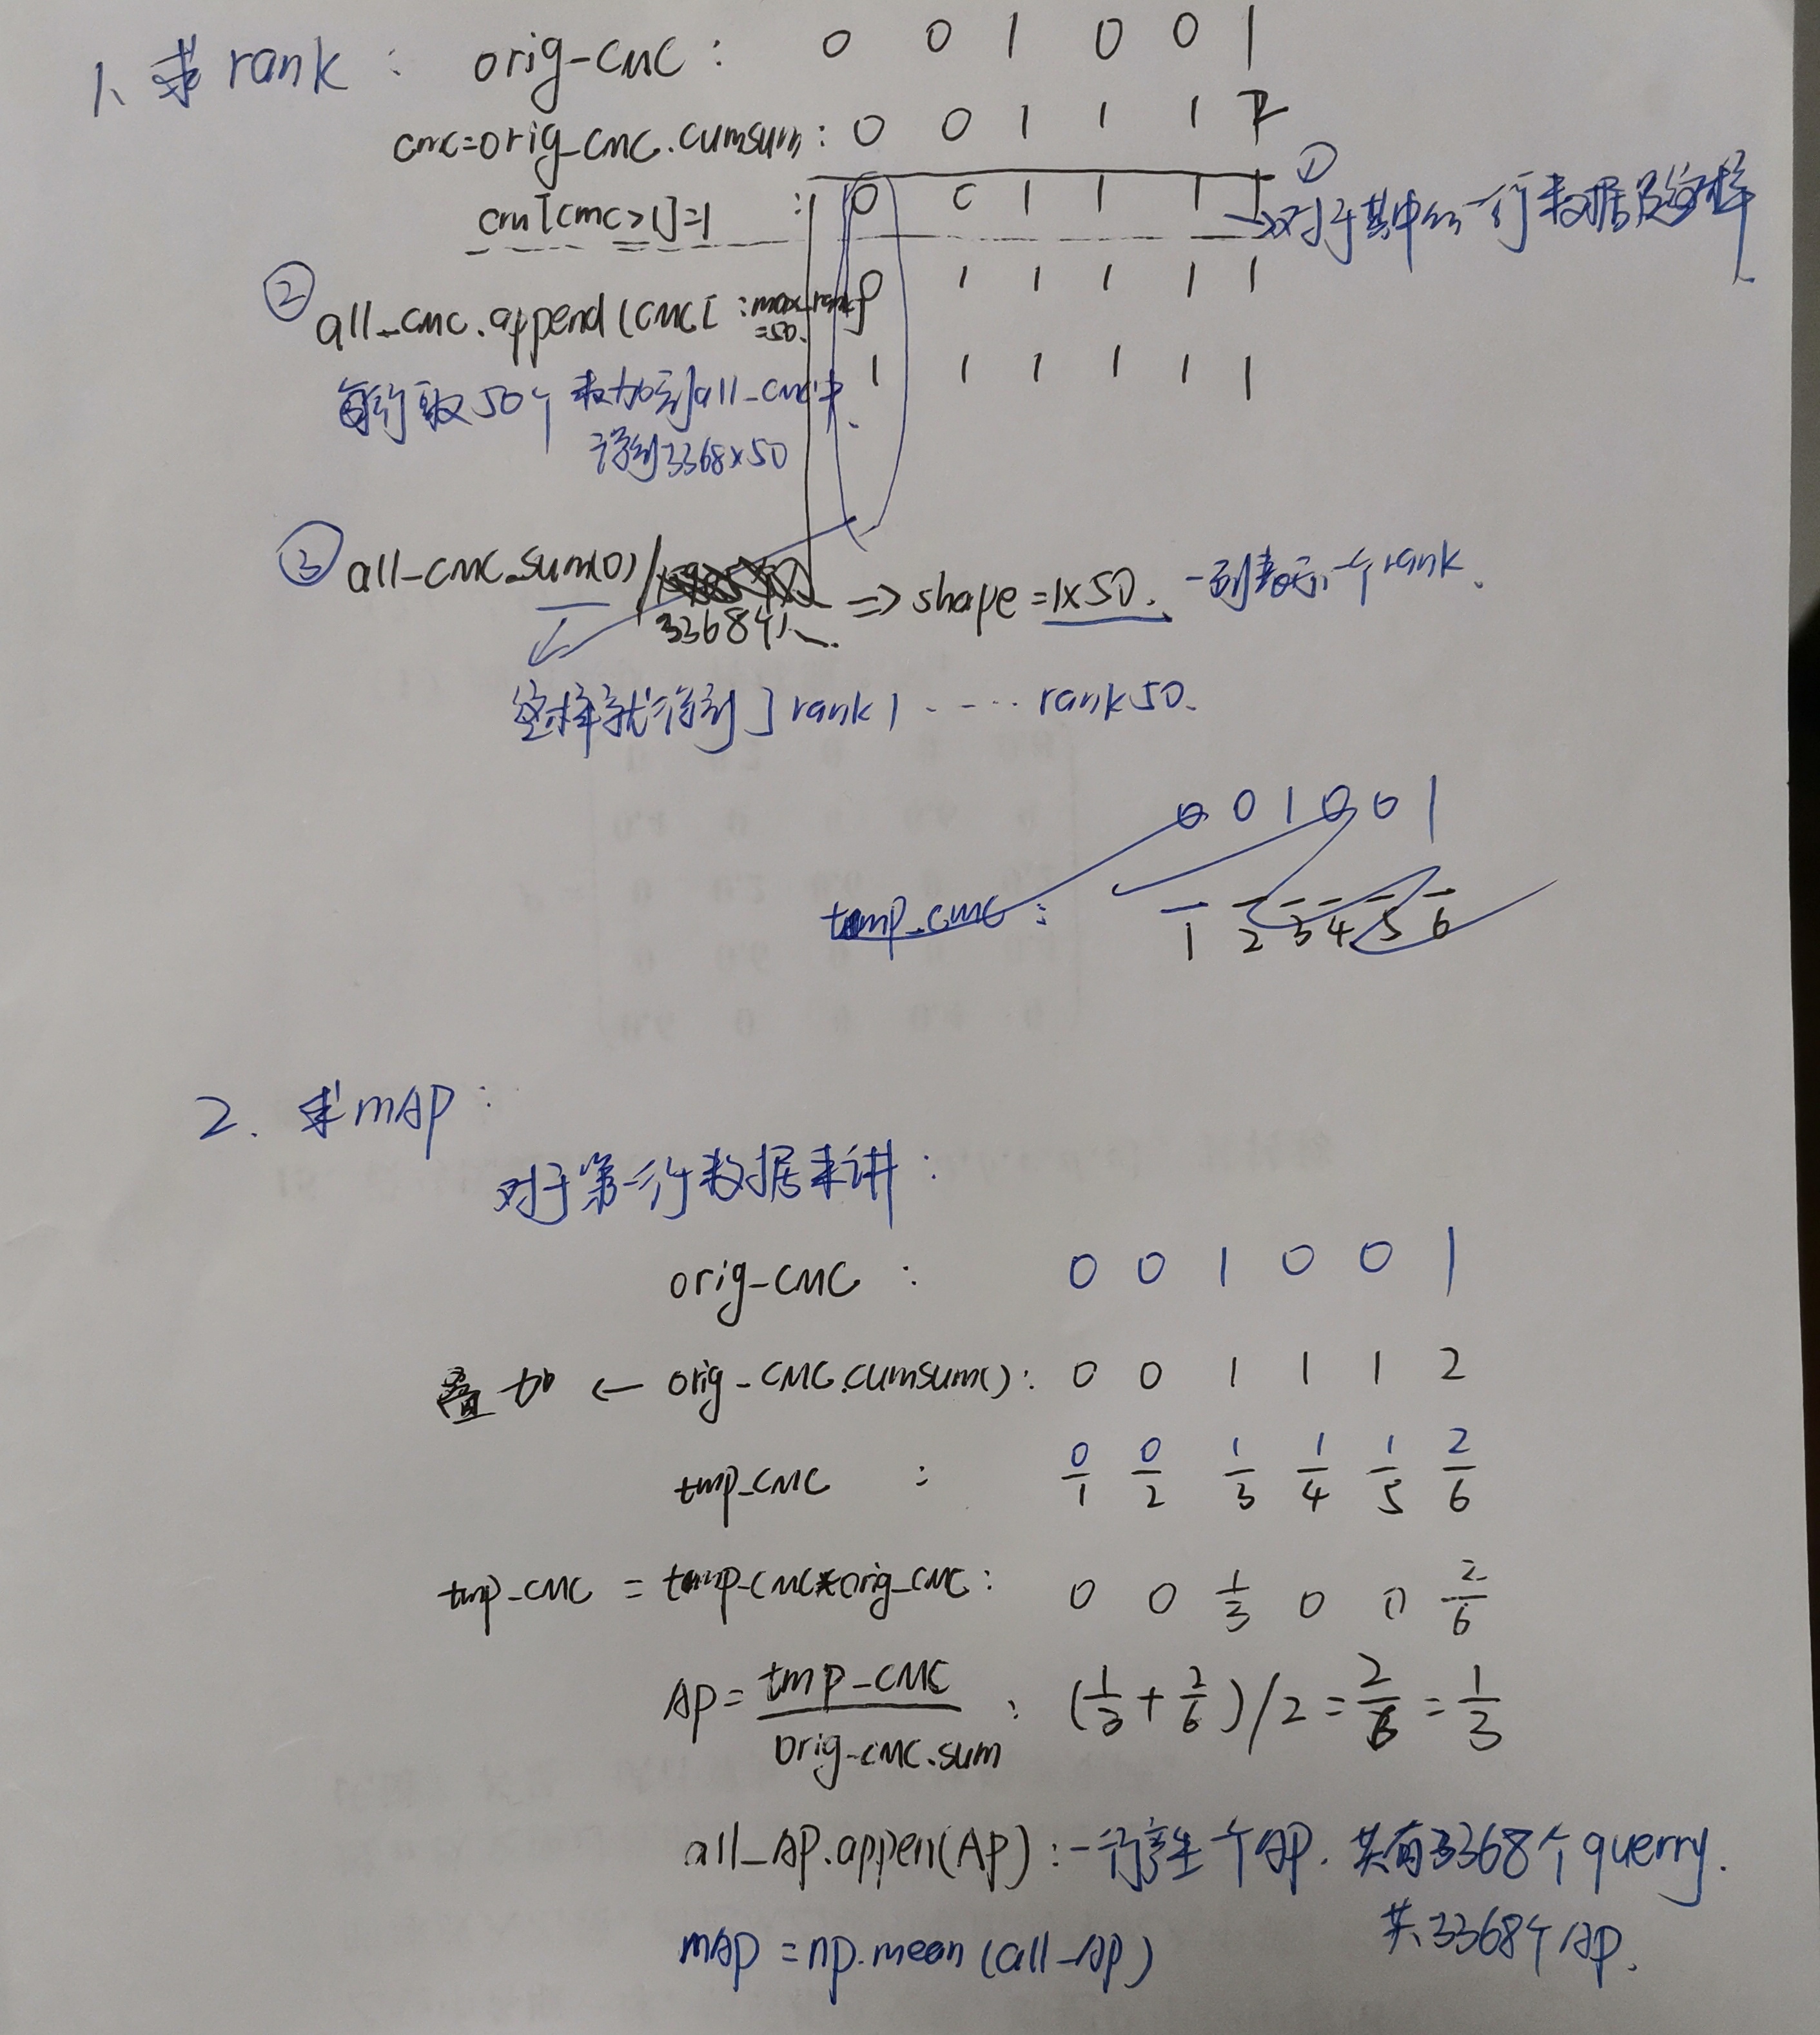 1、求rank： orig-cmc： 0 0 1 0 0 1
cmc=orig_cmc.cumsum： 0 0 1 1 1 2
cm[cmc>1]=1 ： 0 0 1 1 1 1 ① →对于其中的一行数据是这样
0 1 1 1 1 1
② all_cmc.append(cmc[:max_rank]
=50.
1 1 1 1 1 1
每行取50个 来加到all_cmc中、
得到3368×50
③ all-cmc.sum(0)/3368个人 => shape=1×50. 一列表示一个rank.
这样就得到了rank1 ····· rank50.
0 0 1 0 0 1
tmp_cmc：
1 2 3 4 5 6
2. 求mAP：
对于第一行数据来讲：
orig-cmc ： 0 0 1 0 0 1
叠加 ← orig-cmc.cumsum()： 0 0 1 1 1 2
tmp_cmc ： 0/1 0/2 1/3 1/4 1/5 2/6
tmp_cmc = tmp-cmc*orig_cmc： 0 0 1/3 0 0 2/6
AP= tmp-cmc/orig-cmc.sum ： (1/3+2/6)/2=2/6=1/3
all_AP.appen(AP)：一行产生一个AP. 共有3368个querry.
共3368个AP.
mAP =np.mean(all-AP)